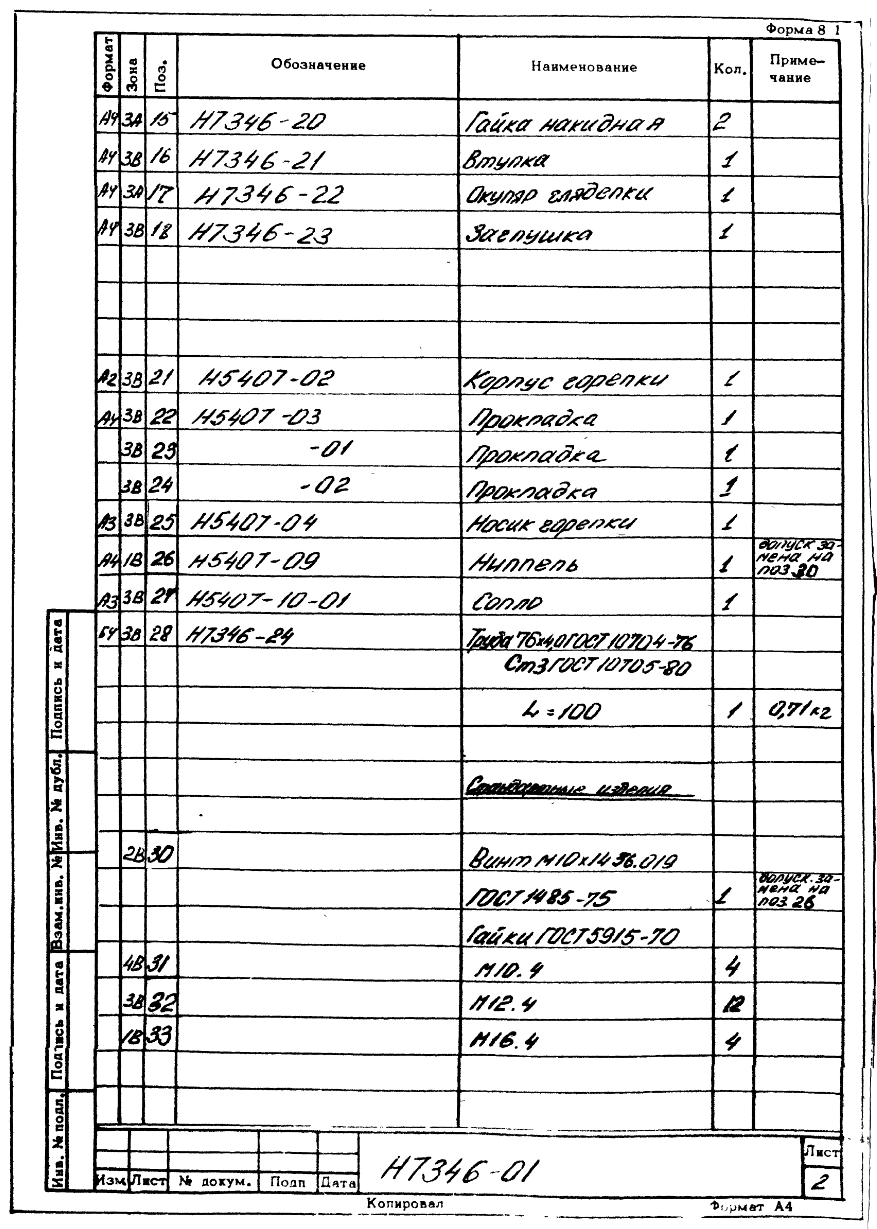 Форма 8 1
Формат Зона Поз. Обозначение Наименование Кол. Приме-
чание
А4 3А 15 Н7346-20 Гайка накидная 2
А4 3В 16 Н7346-21 Втулка 1
А4 3А 17 Н7346-22 Окуляр гляделки 1
А4 3В 18 Н7346-23 Заглушка 1
А2 3В 21 Н5407-02 Корпус горелки 1
А4 3В 22 Н5407-03 Прокладка 1
3В 23 -01 Прокладка 1
3В 24 -02 Прокладка 1
А3 3В 25 Н5407-04 Носик горелки 1
А4 1В 26 Н5407-09 Ниппель 1 допуск за-
мена на
поз 30
А3 3В 27 Н5407-10-01 Сопло 1
БЧ 3В 28 Н7346-24 Труба 76х4,0 ГОСТ 10704-76
Ст3 ГОСТ 10705-80
L=100 1 0,71кг
Стандартные изделия
2В 30 Винт М10х14 36.019
ГОСТ 1485-75 1 допуск. за-
мена на
поз 26
Гайки ГОСТ 5915-70
4В 31 М10.4 4
3В 32 М12.4 12
1В 33 М16.4 4
Инв. № подл. Подпись и дата Взам.инв. № Инв. № дубл. Подпись и дата
Изм Лист № докум. Подп Дата
Н7346-01
Лист
2
Копировал Формат А4